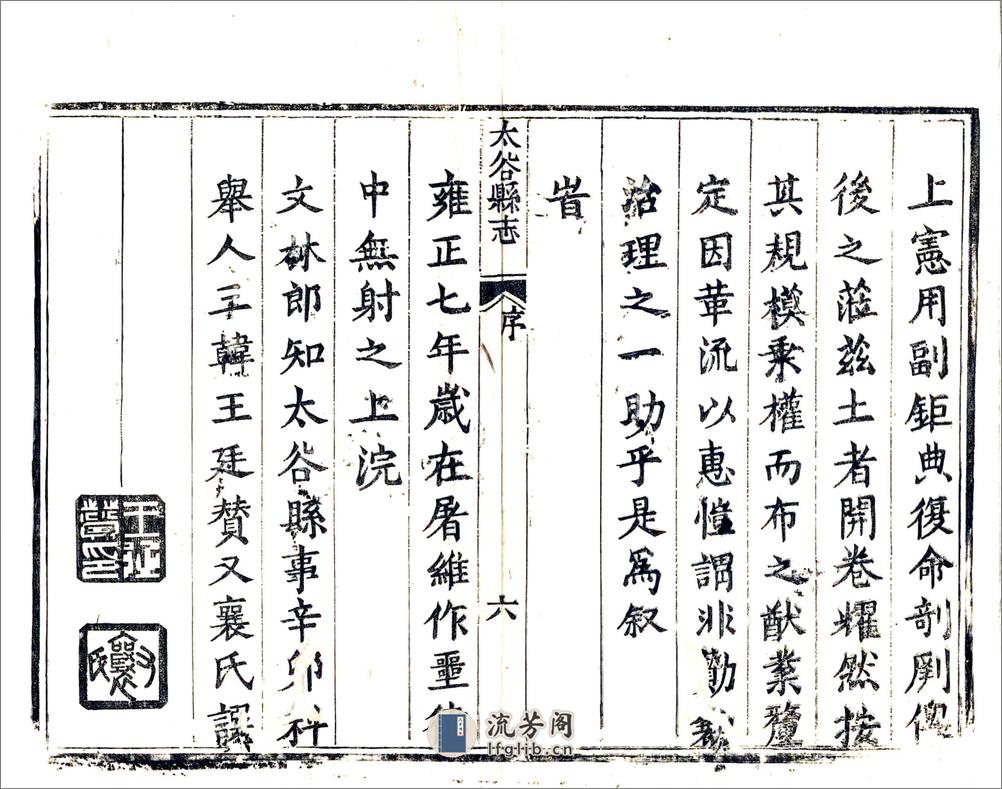 上憲用副鉅典復命剞劂俾
後之蒞玆土者開卷燿然按
其規模秉權而布之猷業釐
定因革流以惠愷謂非勤
治理之一助乎是為叙
旹
太谷縣志
序
六
雍正七年歲在屠維作噩律
中無射之上浣
文林郎知太谷縣事辛卯科
舉人三韓王廷贊又襄氏譔
王廷贊印
又襄氏
流芳阁
lfglib.cn